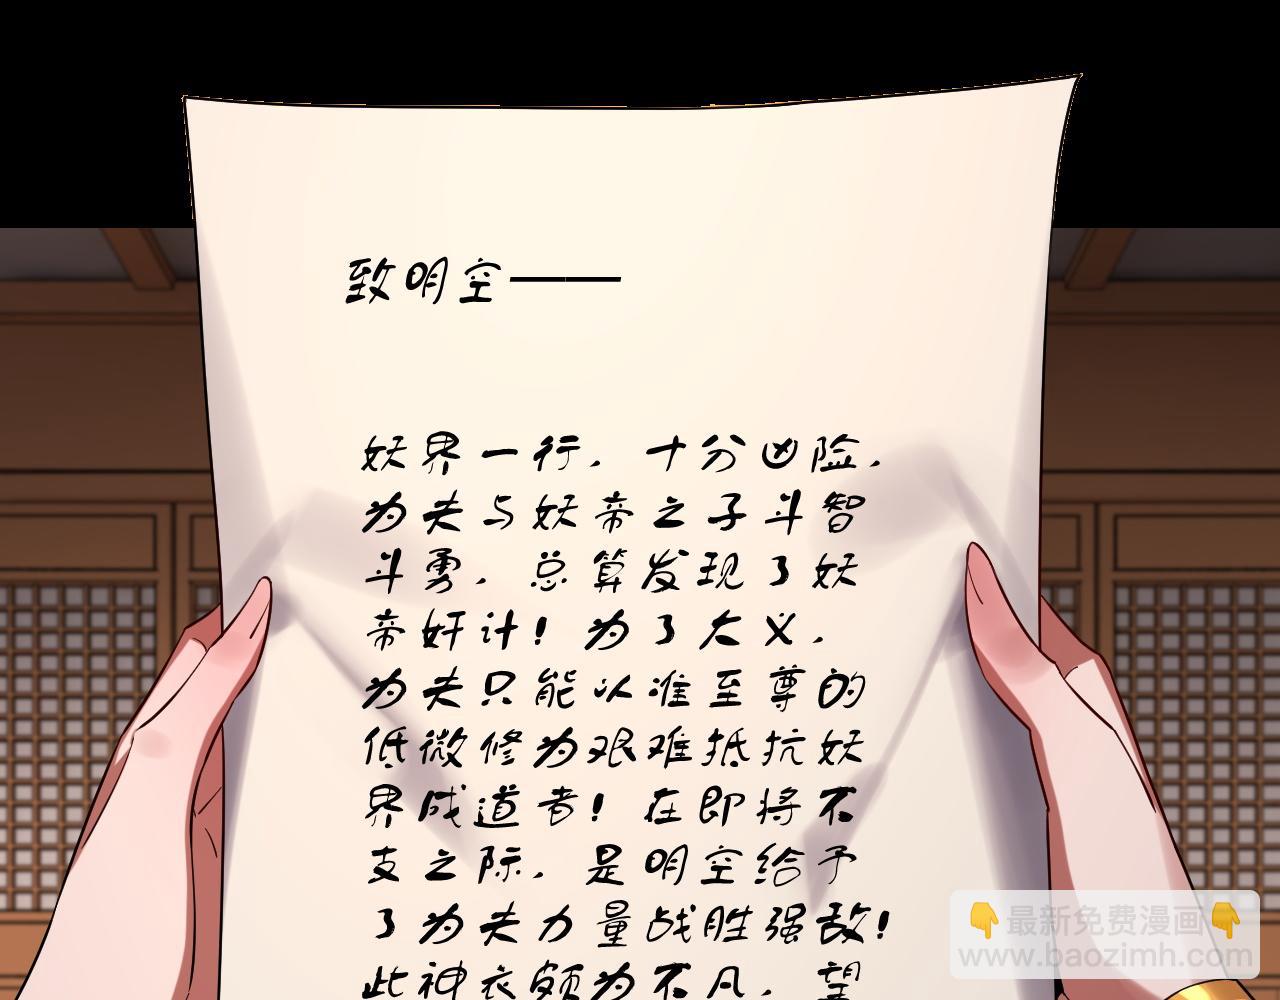 致明空——
妖界一行，十分凶险，
为夫与妖帝之子斗智
斗勇，总算发现了妖
帝奸计！为了大义，
为夫只能以准至尊的
低微修为艰难抵抗妖
界成道者！在即将不
支之际，是明空给予
了为夫力量战胜强敌！
此神衣颇为不凡，望
👇最新免费漫画👇
www.baozimh.com